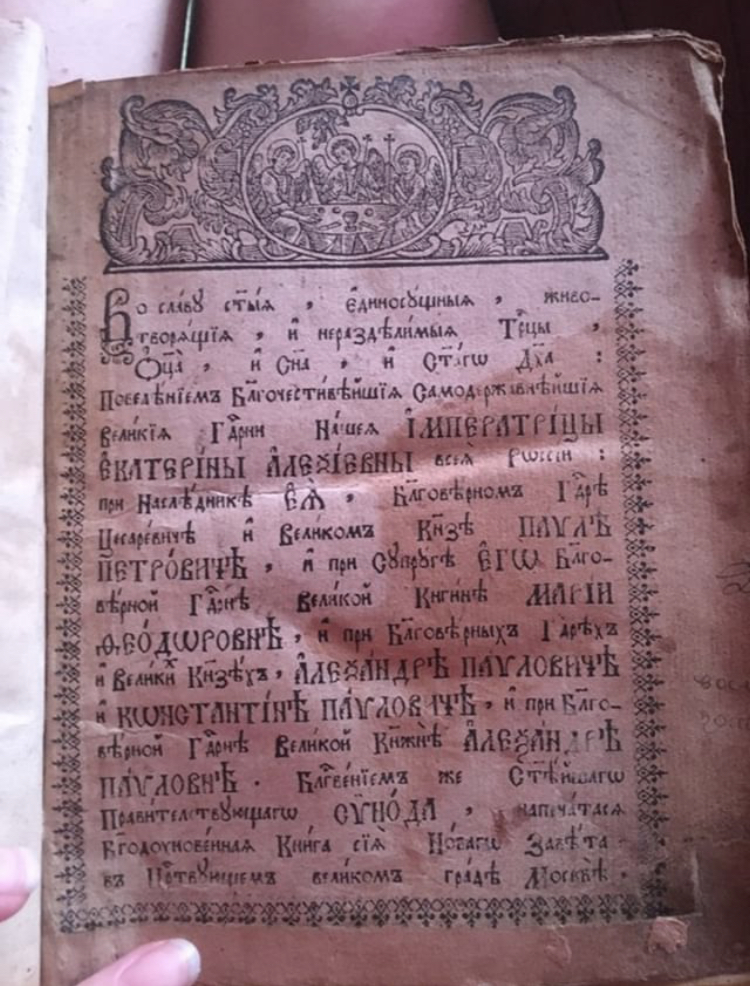 Во славу ст҃ыѧ , є҆диносꙋщныѧ , живо-
творѧ́щїѧ , и҆ нераздѣли́мыѧ Трⷪ҇цы ,
Ѻ҆ц҃а̀ , и҆ Сн҃а , и҆ Ст҃а́гѡ Дх҃а :
Повелѣ́нїемъ Бл҃гочести́вѣйшїѧ Самодержа́внѣйшїѧ
вели́кїѧ Гдⷭ҇рни На́шеѧ И҆МПЕРАТРИ́ЦЫ
Є҆КАТЕРІ́НЫ А҆ЛЕѮІ́ЕВНЫ всеѧ̀ Рѡссі́и :
при Наслѣ́дникѣ Є҆Ѧ̀ , Бл҃говѣ́рномъ Гдⷭ҇рѣ
Цесаре́вичѣ и҆ Вели́комъ Кн҃зѣ ПА́ѴЛѢ
ПЕТРО́ВИЧѢ , и҆ при Сꙋпрꙋ́гѣ Є҆ГѠ̀ Бл҃го-
вѣ́рной Гдⷭ҇рнѣ Вели́кой Кнѧги́нѣ МАРІ́И
Ѳ҆ЕО́ДѠРОВНѢ , и҆ при Бл҃говѣ́рныхъ Гдⷭ҇рѣхъ
и҆ Вели́кихъ Кн҃зѣ́хъ , А҆ЛЕѮА́НДРѢ ПА́ѴЛОВИЧѢ
и҆ КѠНСТАНТІ́НѢ ПА́ѴЛОВИЧѢ , и҆ при Бл҃го-
вѣ́рной Гдⷭ҇рнѣ Вели́кой Кн҃жнѣ̀ А҆ЛЕѮА́НДРѢ
ПА́ѴЛОВНѢ . Бл҃гве́нїемъ же Ст҃ѣ́йшагѡ
Прави́тельствꙋющагѡ СѴНО́ДА , напеча́тасѧ
Бг҃одꙋхнове́ннаѧ Кни́га сїѧ̀ Но́вагѡ Завѣ́та
въ Црⷭ҇твꙋющемъ вели́комъ гра́дѣ Москвѣ̀ .